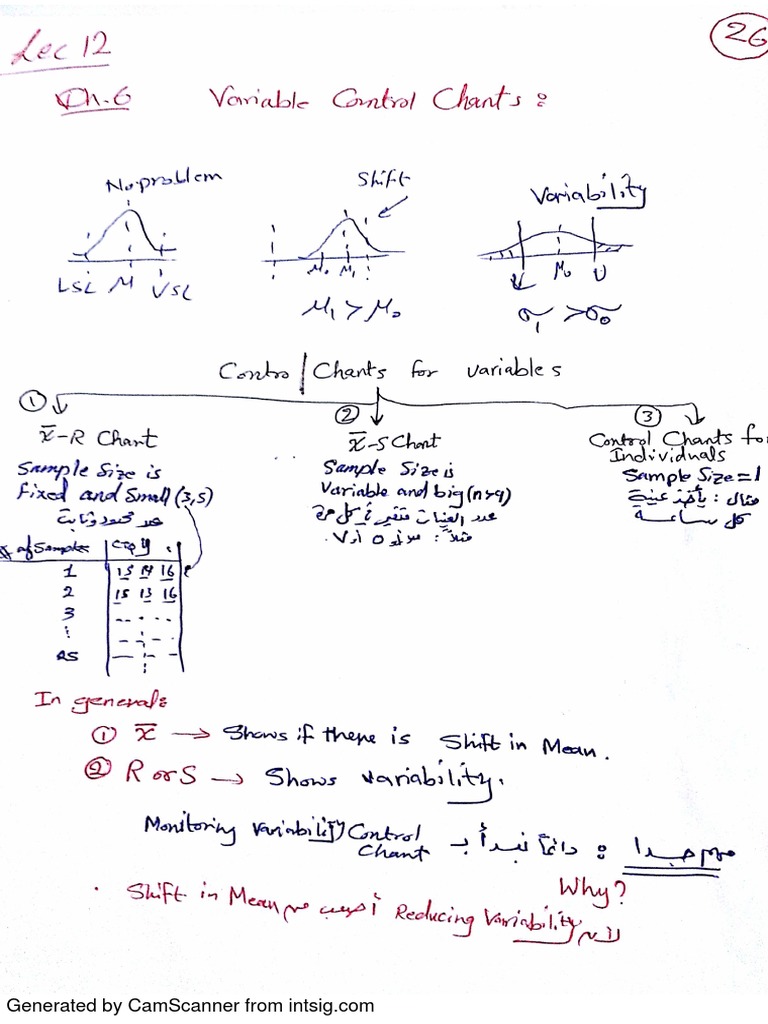 26
Lec 12
Ch.6 Variable Control Charts:
No problem
Shift
Variability
LSL M USL
M₀ M₁
M₀ U
M₁ > M₀
σ₁ > σ₀
Control Charts for variables
① x̄-R Chart
Sample Size is
fixed and small (3,5)
عدد محدود وثابت
# of Samples
1 15 14 16
2 15 13 16
3
25
② x̄-S Chart
Sample Size is
Variable and big (n>9)
عدد العينات متغير في كل مرة
③ Control Chants for
Individuals
Sample Size=1
مثال: يأخذ عينة
كل ساعة
In general:
① x̄ → Shows if there is Shift in Mean.
② R or S → Shows variability.
مهم جدا : دائماً نبدأ بـ Monitoring Variability Control
Chart
Why?
لأن Reducing Variability أصعب من Shift in Mean.
Generated by CamScanner from intsig.com